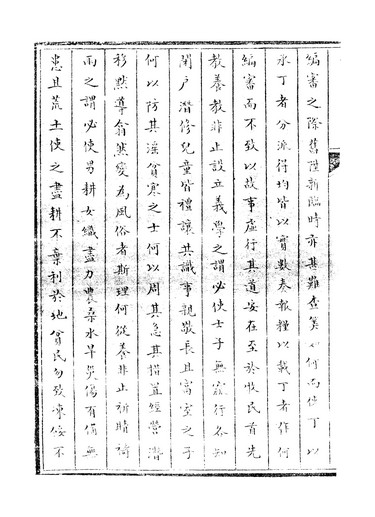 編審之際舊陞新臨時亦甚難查筭 何而使丁以
承丁者分派得均皆以實數奏報糧以載丁者作何
編審而不致以故事虛行其道安在至於收民首先
教養教非止設立義學之謂必使士子無窳行各知
閉戶潛修兒童皆禮讓共識事親敬長且富室之子
何以防其淫貧寒之士何以周其急其措置經營潛
移默導翁然變為風俗者斯理何從養非止祈晴禱
雨之謂必使男耕女織盡力農桑水旱災傷有備無
患且荒土使之盡耕不棄利於地貧民勿致凍餒不